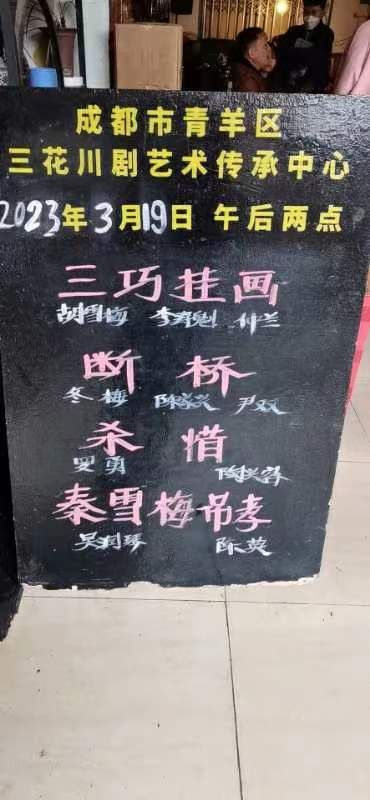 成都市青羊区
三花川剧艺术传承中心
2023年3月19日 午后两点
三巧挂画
胡雪梅 李寿魁 付兰
断桥
冬梅 尹双
杀惜
罗勇
秦雪梅吊孝
吴润琴 陈英